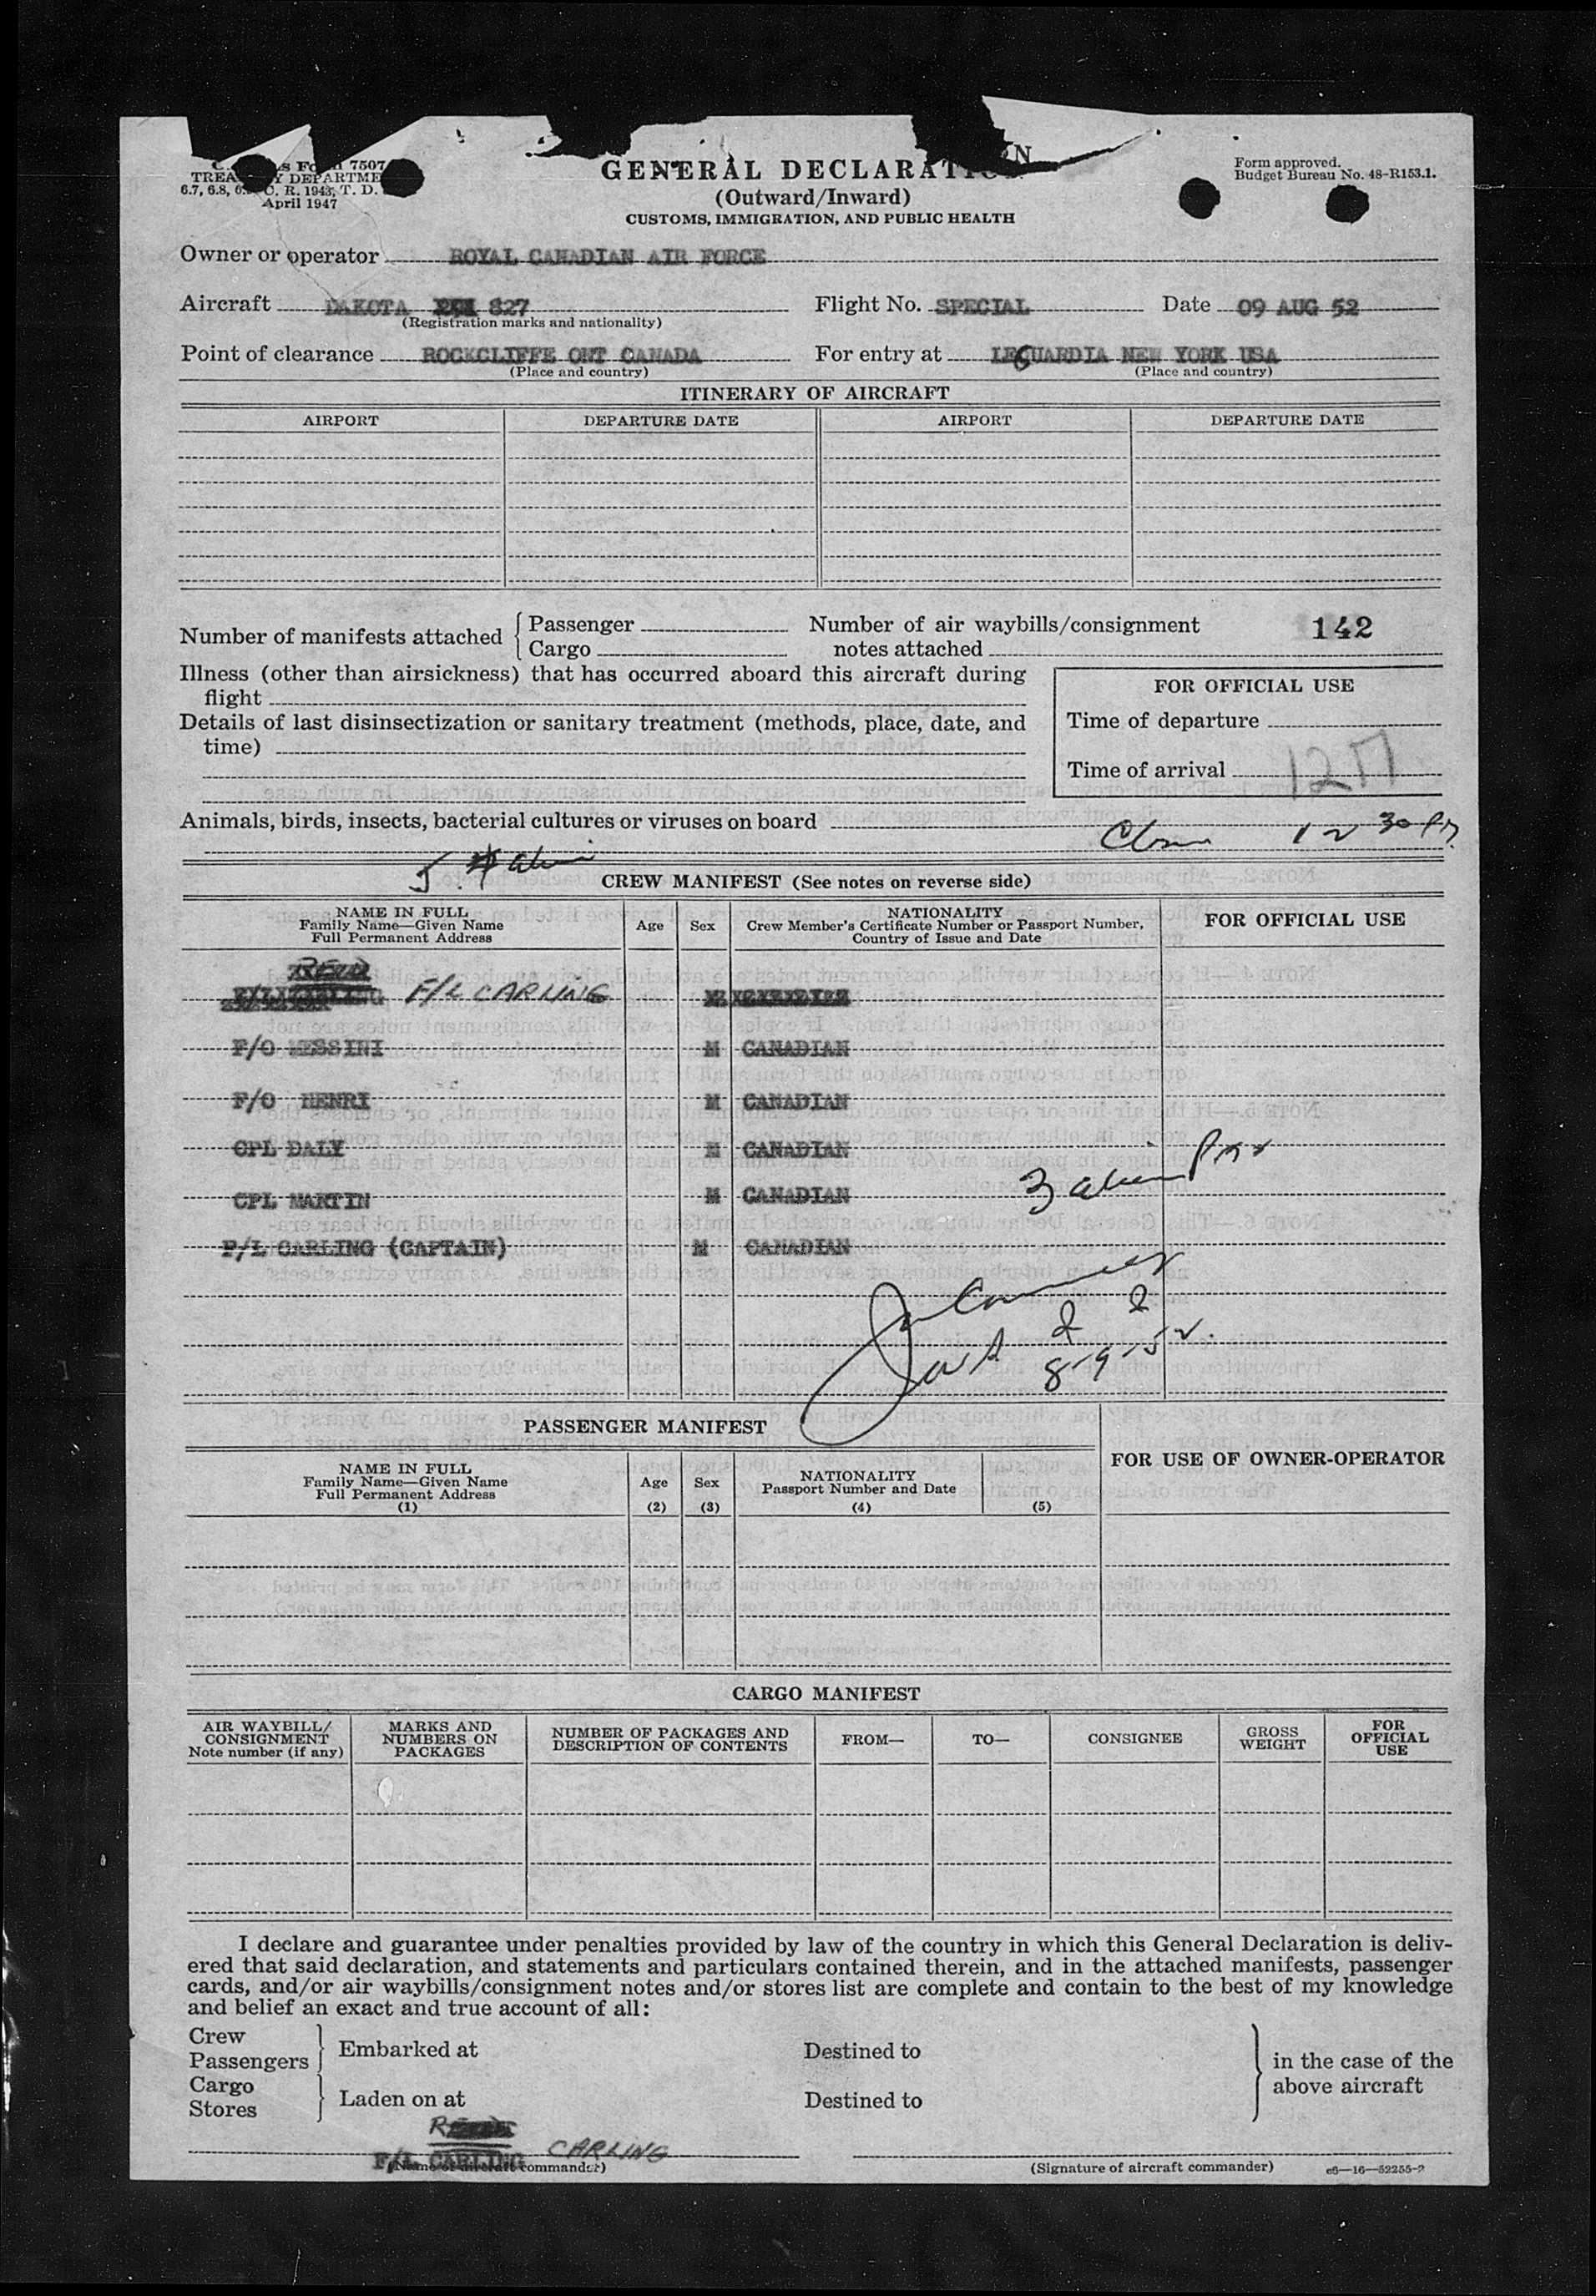 Form 7507
TREASURY DEPARTMENT
6.7, 6.8, C. R. 1943, T. D.
April 1947
GENERAL DECLARATION
(Outward/Inward)
CUSTOMS, IMMIGRATION, AND PUBLIC HEALTH
Form approved.
Budget Bureau No. 48-R153.1.
Owner or operator ROYAL CANADIAN AIR FORCE
Aircraft DAKOTA 827
(Registration marks and nationality)
Flight No. SPECIAL Date 09 AUG 52
Point of clearance ROCKCLIFFE ONT CANADA
(Place and country)
For entry at LEGUARDIA NEW YORK USA
(Place and country)
ITINERARY OF AIRCRAFT
AIRPORT DEPARTURE DATE AIRPORT DEPARTURE DATE
Number of manifests attached { Passenger
Cargo
Number of air waybills/consignment
notes attached
142
Illness (other than airsickness) that has occurred aboard this aircraft during
flight
Details of last disinsectization or sanitary treatment (methods, place, date, and
time)
FOR OFFICIAL USE
Time of departure
Time of arrival 1217
Animals, birds, insects, bacterial cultures or viruses on board
12 30 Pm
CREW MANIFEST (See notes on reverse side)
NAME IN FULL
Family Name—Given Name
Full Permanent Address
Age
Sex
NATIONALITY
Crew Member's Certificate Number or Passport Number,
Country of Issue and Date
FOR OFFICIAL USE
F/L CARLING
F/O MESSINI M CANADIAN
F/O HENRI M CANADIAN
CPL DALY M CANADIAN
CPL MARTIN M CANADIAN
3 alien
F/L CARLING (CAPTAIN) M CANADIAN
8-9-52.
PASSENGER MANIFEST
NAME IN FULL
Family Name—Given Name
Full Permanent Address
(1)
Age
(2)
Sex
(3)
NATIONALITY
Passport Number and Date
(4)
(5)
FOR USE OF OWNER-OPERATOR
CARGO MANIFEST
AIR WAYBILL/
CONSIGNMENT
Note number (if any)
MARKS AND
NUMBERS ON
PACKAGES
NUMBER OF PACKAGES AND
DESCRIPTION OF CONTENTS
FROM—
TO—
CONSIGNEE
GROSS
WEIGHT
FOR
OFFICIAL
USE
I declare and guarantee under penalties provided by law of the country in which this General Declaration is deliv-
ered that said declaration, and statements and particulars contained therein, and in the attached manifests, passenger
cards, and/or air waybills/consignment notes and/or stores list are complete and contain to the best of my knowledge
and belief an exact and true account of all:
Crew
Passengers } Embarked at Destined to
Cargo
Stores } Laden on at Destined to
} in the case of the
above aircraft
F/L CARLING CARLING
(Name of aircraft commander)
(Signature of aircraft commander)
c6—16—52255-2